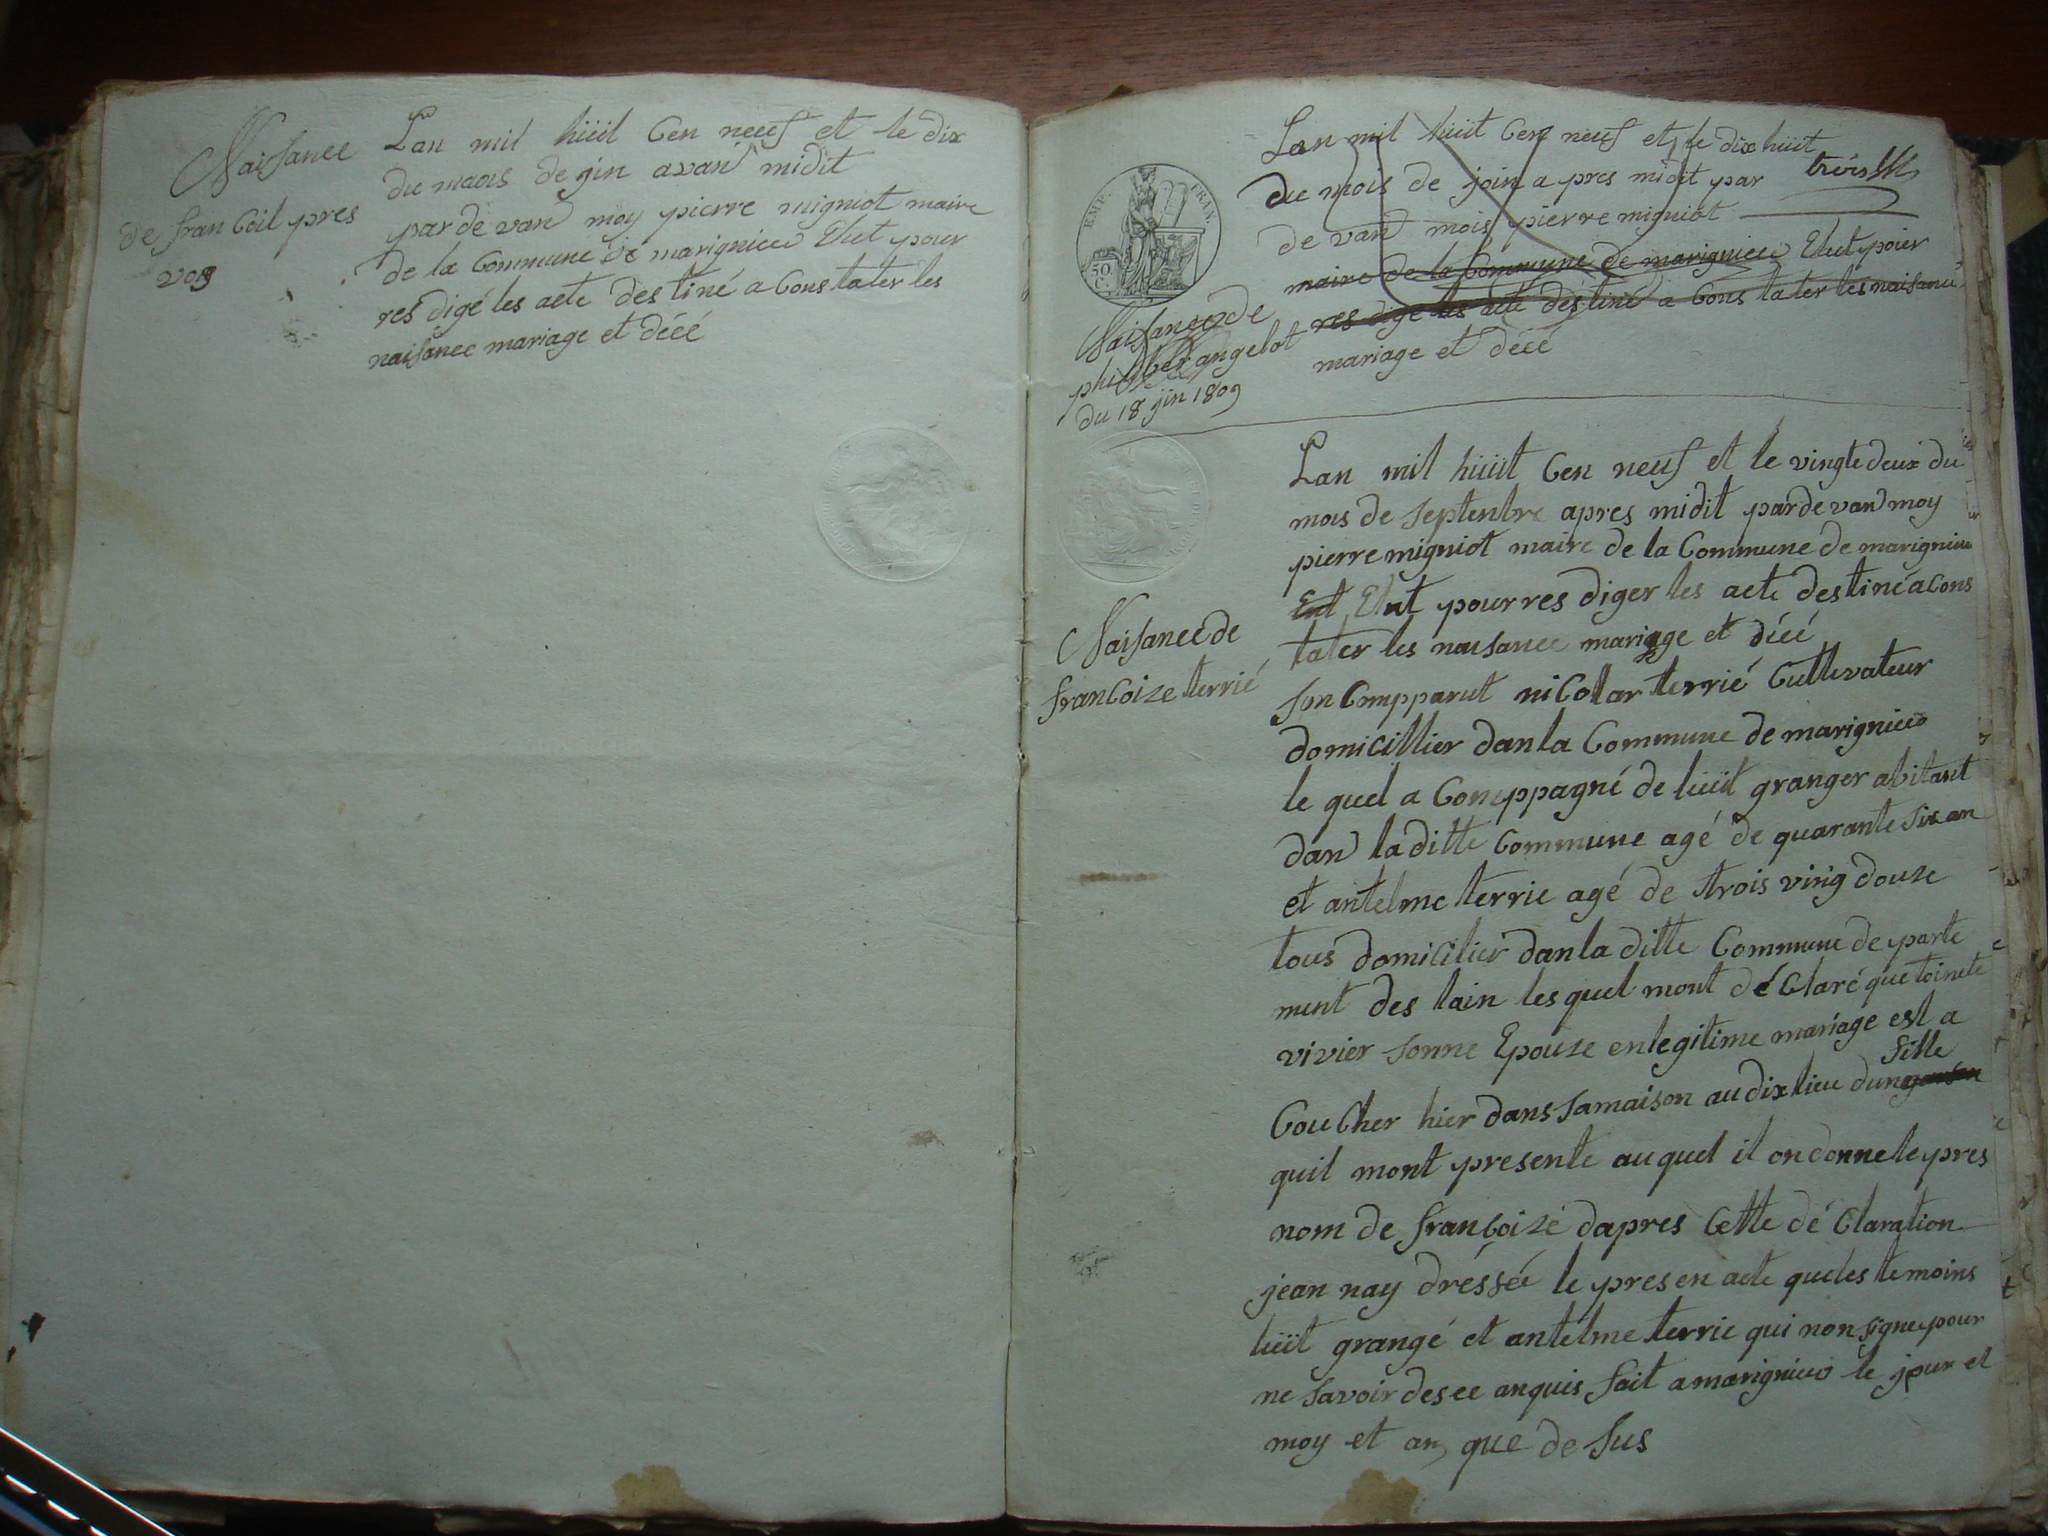 Naisance
de franCoil pres
vos
Lan mil hüit Cen neuf et le dix
du maois de gin avan midit
par de van moy pierre migniot maire
de la Commune de marignieu Elut pour
res digé les acte destiné a Constater les
naisance mariage et décé
EMP. FRAN.
50
C.
Naisance de
philiber angelot
du 18 jin 1809
Lan mil hüit Cen neuf et le dix hüit
du mois de join a pres midit par
de van mois pierre migniot
maire de la Commune de marignieu Elut poier
res digé les acte destiné a Cons tater les naisance
mariage et décé
Naisance de
franCoize terrié
Lan mil hüit Cen neuf et le vingte deux du
mois de septenbre apres midit parde van moy
pierre migniot maire de la Commune de marignieu
Eut Elut pour res diger les acte destiné a Cons
tater les naisance mariage et décé
son Compparut niColar terrié Cultevateur
domicillier dan la Commune de marignieu
le quel a Comppagné de lüit granger abitant
dan la ditte Commune agé de quarante six an
et antelme terrie agé de trois ving douze
tous domicilier dan la ditte Commune de parte
ment des lain les quel mont déClaré que toinete
vivier sonne Epouze enlegitime mariage est a
fille
CouCher hier dans samaison au dix lieu dun garson
quil mont presente au quel il on donne le pres
nom de françoize dapres Cette dé Claration
jean nay dréssée le presen acte que les temoins
lüit grangé et antélme terrie qui non signe pour
ne savoir desee anquis fait a marignieu le jour et
moy et an que de sus